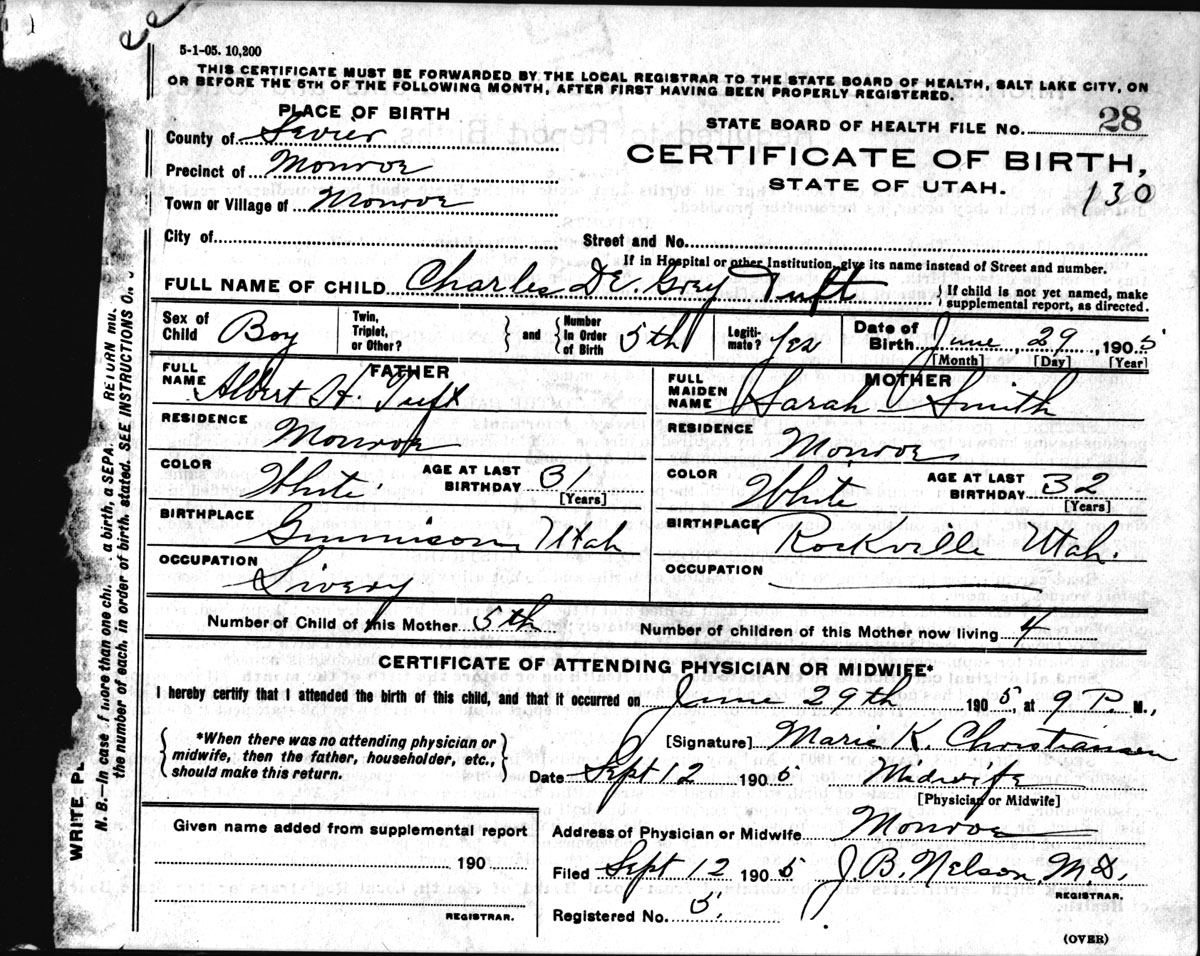 5-1-05. 10,200
THIS CERTIFICATE MUST BE FORWARDED BY THE LOCAL REGISTRAR TO THE STATE BOARD OF HEALTH, SALT LAKE CITY, ON
OR BEFORE THE 5TH OF THE FOLLOWING MONTH, AFTER FIRST HAVING BEEN PROPERLY REGISTERED.
PLACE OF BIRTH
STATE BOARD OF HEALTH FILE No. 28
County of Sevier
CERTIFICATE OF BIRTH,
Precinct of Monroe
STATE OF UTAH.
130
Town or Village of Monroe
City of
Street and No.
If in Hospital or other Institution, give its name instead of Street and number.
FULL NAME OF CHILD Charles De. Grey Tufts
If child is not yet named, make
supplemental report, as directed.
Sex of Child Boy
Twin, Triplet, or Other?
and
Number In Order of Birth 5th
Legiti-mate? Yes
Date of Birth June, 29, 1905
[Month] [Day] [Year]
FATHER
FULL NAME Albert H. Tuft
MOTHER
FULL MAIDEN NAME Sarah Smith
RESIDENCE Monroe
RESIDENCE Monroe
COLOR White
AGE AT LAST BIRTHDAY 31
[Years]
COLOR White
AGE AT LAST BIRTHDAY 32
[Years]
BIRTHPLACE Gunnison Utah
BIRTHPLACE Rockville Utah.
OCCUPATION Livery
OCCUPATION
Number of Child of this Mother 5th
Number of children of this Mother now living 4
CERTIFICATE OF ATTENDING PHYSICIAN OR MIDWIFE*
I hereby certify that I attended the birth of this child, and that it occurred on June 29th 1905, at 9 P. M.,
*When there was no attending physician or
midwife, then the father, householder, etc.,
should make this return.
[Signature] Marie K. Christiansen
Date Sept 12 1905 Midwife
[Physician or Midwife]
Given name added from supplemental report
190
REGISTRAR.
Address of Physician or Midwife Monroe
Filed Sept 12 1905 J. B. Nelson M.D.
REGISTRAR.
Registered No. 5.
(OVER)
WRITE PL
N. B.—In case of more than one chi a birth, a SEPA RETURN mu
the number of each, in order of birth, stated. SEE INSTRUCTIONS ON